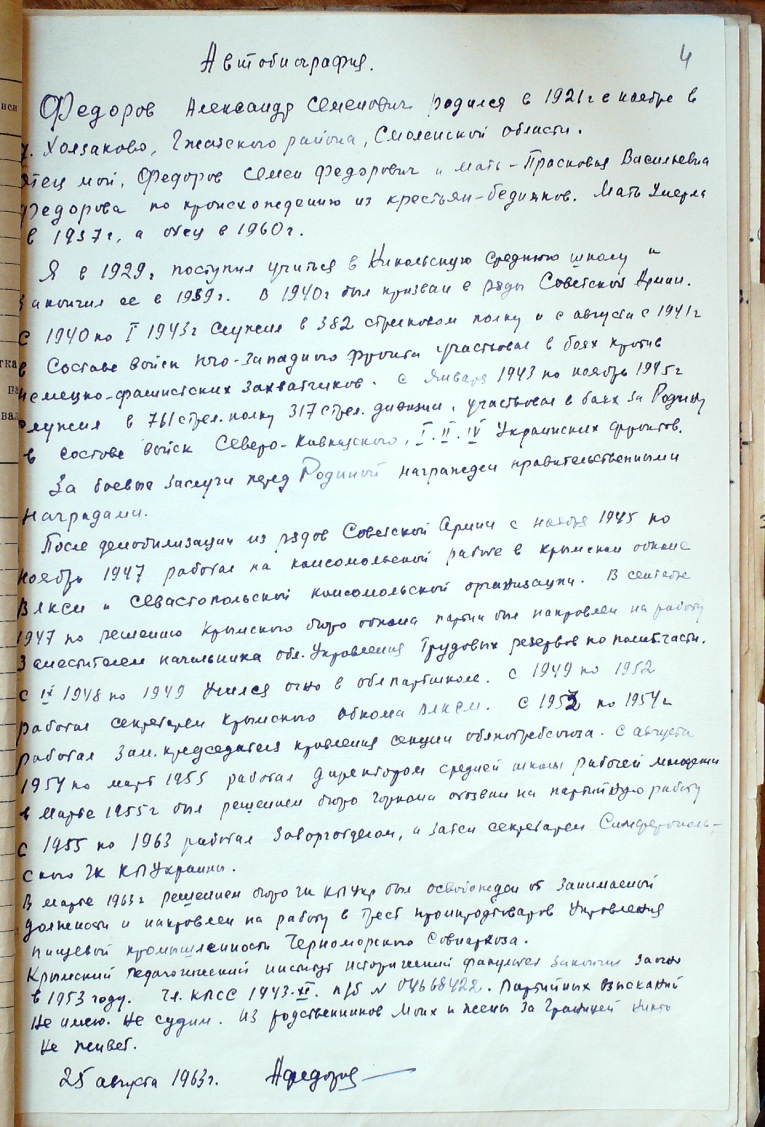 4
Автобиография.
Федоров Александр Семенович родился в 1921 г в ноябре в
д. Холзаково, Гжатского района, Смоленской области.
Отец мой, Федоров Семен Федорович и мать - Прасковья Васильевна
Федорова по происхождению из крестьян-бедняков. Мать умерла
в 1937 г, а отец в 1960 г.
Я в 1929 г поступил учиться в Никольскую среднюю школу и
закончил ее в 1939 г. В 1940 г был призван в ряды Советской Армии.
С 1940 по I 1943 г служил в 382 стрелковом полку и с августа с 1941 г
в составе войск Юго-Западного фронта участвовал в боях против
немецко-фашистских захватчиков. С января 1943 по ноябрь 1945 г
служил в 761 стрел. полку 317 стрел. дивизии, участвовал в боях за Родину
в составе войск Северо-Кавказского, I. II. IV Украинских фронтов.
За боевые заслуги перед Родиной награжден правительственными
наградами.
После демобилизации из рядов Советской Армии с ноября 1945 по
ноябрь 1947 работал на комсомольской работе в Крымском обкоме
ВЛКСМ и Севастопольской комсомольской организации. В сентябре
1947 по решению Крымского бюро обкома партии был направлен на работу
Заместителем начальника обл. Управления Трудовых резервов по политчасти.
С IX 1948 по 1949 учился очно в облпартшколе. С 1949 по 1952
работал секретарем Крымского обкома ВЛКСМ. С 1952 по 1954 г
работал зам. председателя правления секции облпотребсоюза. С августа
1954 по март 1955 работал директором средней школы рабочей молодежи
в марте 1955 г был решением бюро Горкома отозван на партийную работу
С 1955 по 1963 работал Заворготделом, а затем секретарем Симферополь-
ского ГК КП Украины.
В марте 1963 г решением бюро ГК КП Укр был освобожден от занимаемой
должности и направлен на работу в Трест промпродтоваров Управления
пищевой промышленности Черноморского Совнархоза.
Крымский педагогический институт исторический факультет закончил заочно
в 1953 году. Чл. КПСС 1943.XI. п/б № 04668422. Партийных взысканий
не имею. Не судим. Из родственников моих и жены за границей никто
не живет.
25 августа 1963 г. АФедоров